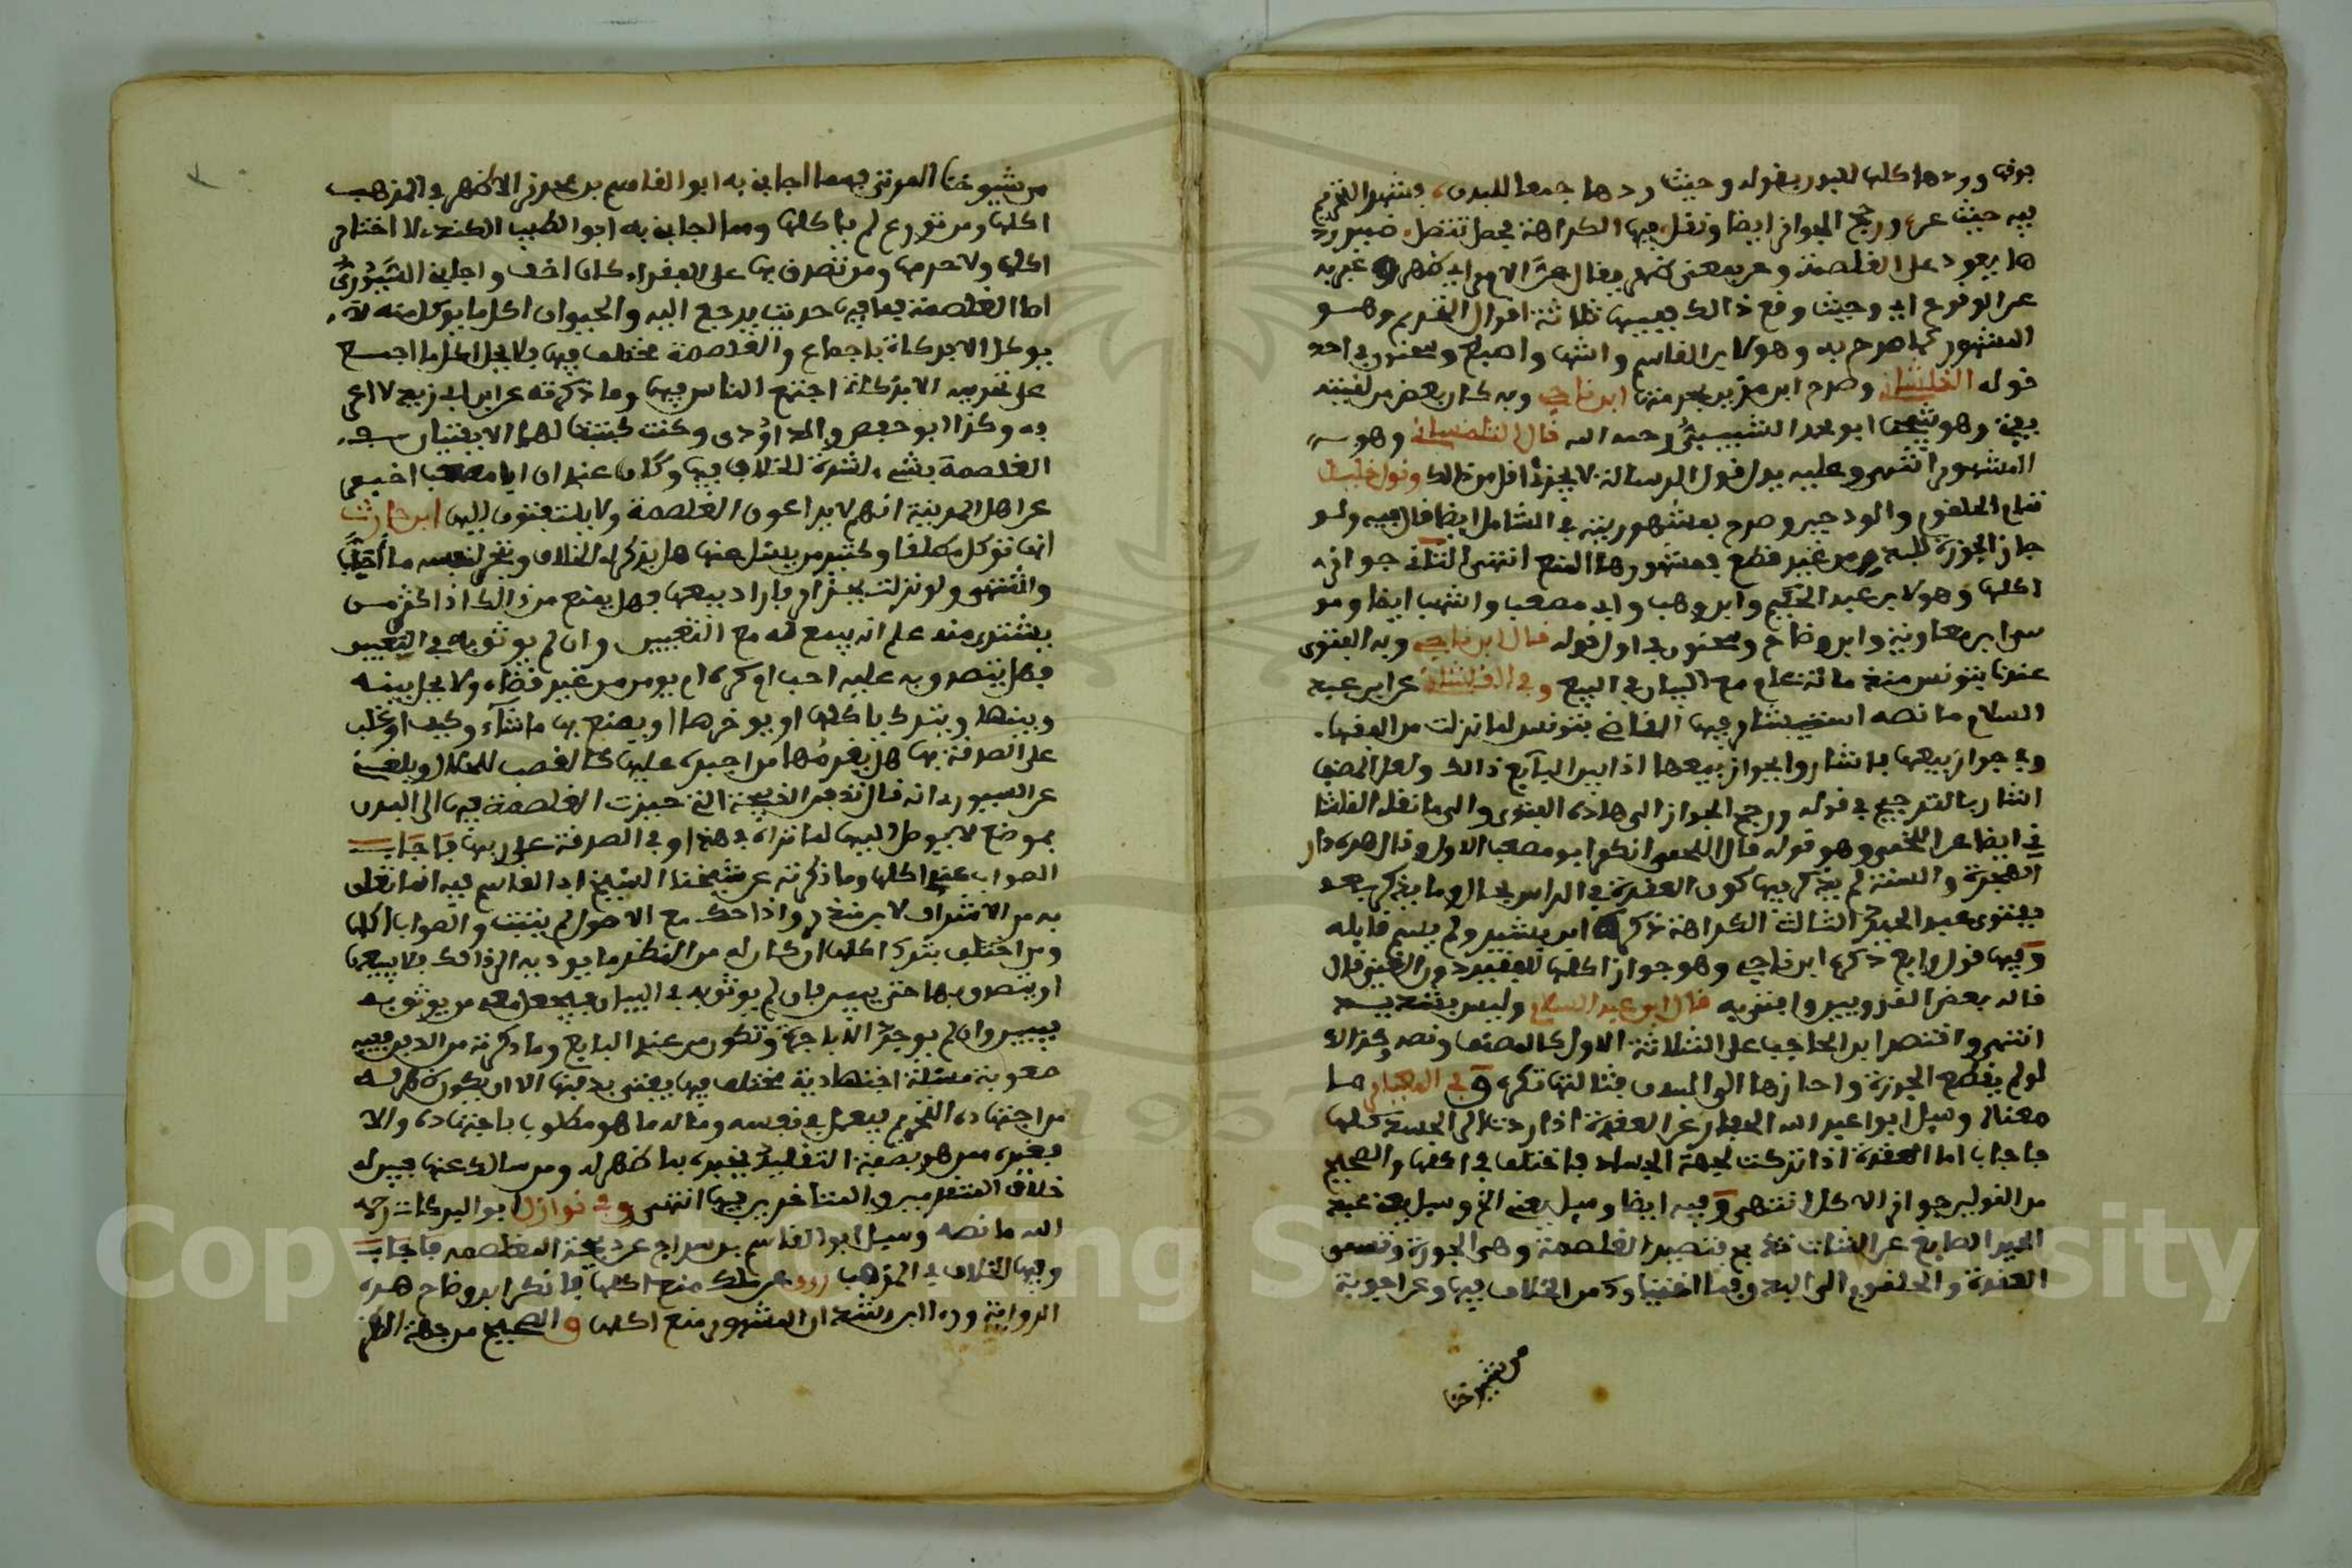 فوق وردها كلها للبدن بقوله وحيث ردها جمعا للبدن فشهر التحريم
فيه حيث عن ورجح الجواز ايضا ونقل فيها الكراهة فحصل تنضل ضمير رد
ها يعود على الغلصمة وعن بمعنى ظهر يقال عن الامر اي ظهر وعبر به
عن الوقوع اي وحيث وقع ذالك ففيها ثلاثة اقوال التحريم وهو
المشهور كما صرح به وهو لابن القاسم واشهب واصبغ وسحنون في احد
قوله القلشاني وصرح ابن مزين بحرمتها ابن ناجي وبه كان بعض من لقيته
يفتي وهو شيخنا ابو محمد الشبيبي رحمه الله قال التلمساني وهو
المشهور انتهى وعليه يدل قول الرسالة لا يجزئ اقل من ذالك وقول خليل
تمام الحلقوم والودجين وصرح بمشهوريته في الشامل ايضا قال فيه ولو
حاز الجوزة للبدن من غير قطع فمشهورها المنع انتهى الثاني جواز
اكلها وهو لابن عبد الحكم وابن وهب وابي مصعب واشهب ايضا ومو
سى ابن معاوية وابن وضاح وسحنون في اول قوله قال ابن ناجي وبه الفتوى
عندنا بتونس منذ مائة عام مع البيان في البيع وفي القلشاني عن ابن عبد
السلام ما نصه استشار فيها القاضي بتونس لما نزلت من الفقهاء
في جواز بيعها فاشاروا بجواز بيعها اذا بين البايع ذالك ولعل المصنف
اشار بالترجيح في قوله ورجح الجواز الى هاذه الفتوى والى ما نقل القلشا
ني ايضا عن اللخمي وهو قوله قال اللخمي انكر ابو مصعب الاول وقال هذه دار
الهجرة والسنة لم يذكر فيها كون العقدة في الراس بحال وما يذكر بعد
بفتوى عبد الحميد الثالث الكراهة ذكره ابن بشير ولم يسم قايله
وفيها قول رابع ذكره ابن ناجي وهو جواز اكلها للفقير دون الغني قال
قاله بعض القرويين وافتى به قال ابن عبد السلام وليس بشديد
انتهى واقتصر ابن الحاجب على الثلاثة الاول كالمصنف ونصه وكذالك
لو لم يقطع الجوزة واحازها الى البدن فثالثها تكره وفي المعيار ما
معناه وسيل ابوا عبد الله الحفار عن العقدة اذا ردت الى الجسد كلها
فاجاب اما العقدة اذا تركت لجهة الجسد فاختلف في اكلها والصحيح
من القولين جواز الاكل انتهى وفيه ايضا وسيل يعني الخ وسيل يعني عبد
الحميد الصايغ عن الشاة تذبح فتصير الغلصمة وهي الجوزة وتسمى
العقدة والحلقوم الى البدن وبما افتينا وذكر من الخلاف فيها وعن اجوبة
من شيوخنا
من شيوخنا المفتى بهما اجاب به ابو القاسم بن محرز الاظهر في المذهب
اكلها ومن تورع لم ياكلها ومما اجاب به ابوا الطيب الكندي لا اختار
اكلها ولا احرمها ومن تصدق بها على الفقراء كان اخف واجاب السيوري
اما الغلصمة فما فيها حديث يرجع اليه والحيوان اكل ما يوكل منه لا
يوكل الا بذكاة باجماع والغلصمة مختلف فيها فلا يحل اكل ما اجمع
على تحريمه الا بذكاة اجتمع الناس فيها وما ذكرته عن ابن ابي زيد لا اعر
فه وكذا ابو حفص والداوودي وكنت كتبت لهم الا يفتيان في
الغلصمة بشيء لشدة الخلاف فيها وكان عندي ان ابا مصعب اخبر
عن اهل المدينة انهم لا يراعون الغلصمة ولا يلتفتون اليها ابن حارث
انها توكل مطلقا وكثير من يسئل عنها هل يذكر له الخلاف ويتخير لنفسه ما احب
واشتهى ولو نزلت بجزار فاراد بيعها فهل يمنع من ذالك اذا كثر من
يشترى منه على انه يبيع له مع التبيين وان لم يوثق به في التبيين
فهل يتصدق به عليه احب او كره ام يومر من غير قضاء ولا يحل بينه
وبينها ويترك ياكلها او يوخرها او يصنع بها ما شاء وكيف او غلب
على الصدقة بها هل يغرمها من اجبره عليها كالغصب للملك وبلغني
عن السيوري انه قال تدفن الذبيحة التي حيزت الغلصمة فيها الى البدن
بموضع لا يوصل اليها لما تراه في هذا وفي الصدقة على ربها فاجاب
الصواب عندي اكلها وما ذكرته عن شيخنا الشيخ ابي القاسم فيه انما تعلق
به من الاشراف لابن منذر واذا حك مع الاصول لم يثبت والصواب اكلها
ومن اختلف بترك اكلها ان كان له من النظر ما يوديه الى ذالك فلا يبيعها
او يتصدق بها حتى يبين فان لم يوثق به في البيان فيجعل معه من يوثق به
يبين وان لم يوجد الا باجرة وتكون من عند البايع وما ذكرته من الدين فيه
صعوبة مسئلة اجتهادية مختلف فيها يفتى بديتها الا ان يكون ظهر له
من اجتهاده التحريم فيعمل في نفسه وماله ما هو مطلوب باجتهاده والا
فغيره ممن هو بصفة التقليد يخبره بما ظهر له ومن سالك عنها فبين له
خلاف المتقدمين والمتاخرين فيها انتهى وفي نوازل ابو البركات رحمه
الله ما نصه وسيل ابو القاسم بن سراج عن ذبيحة المغلصمه فاجاب
وفيها الخلاف في المذهب روى عن ملك منع اكلها فانكر ابن وضاح هذه
الرواية وراى ابن رشد ان المشهور منع اكلها والصحيح من جهة النظر